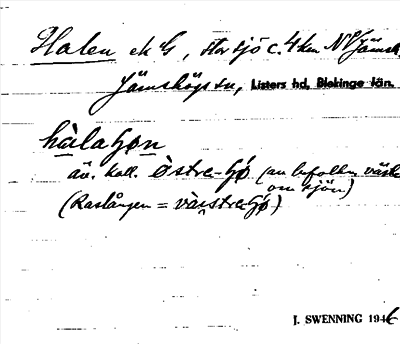 Halen ek G, stor sjö c. 4 km NV Jämsh
Jämshögs sn, Listers hd, Blekinge län.
hàlagøn
äv. kall. östre-Gø (av befolkn. väster
om sjön)
(Raslången = västre-Gø)
J. SWENNING 1946